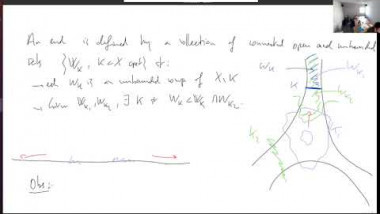 An end is defined by a collection of connected open and unbounded
sets { W_K, K ⊂ X cpct } st:
each W_K is an unbounded comp of X \ K
Given W_K1, W_K2, ∃ K W_K ⊂ W_K1 ∩ W_K2.
Obs:
W_K
K
W_K1
K_2